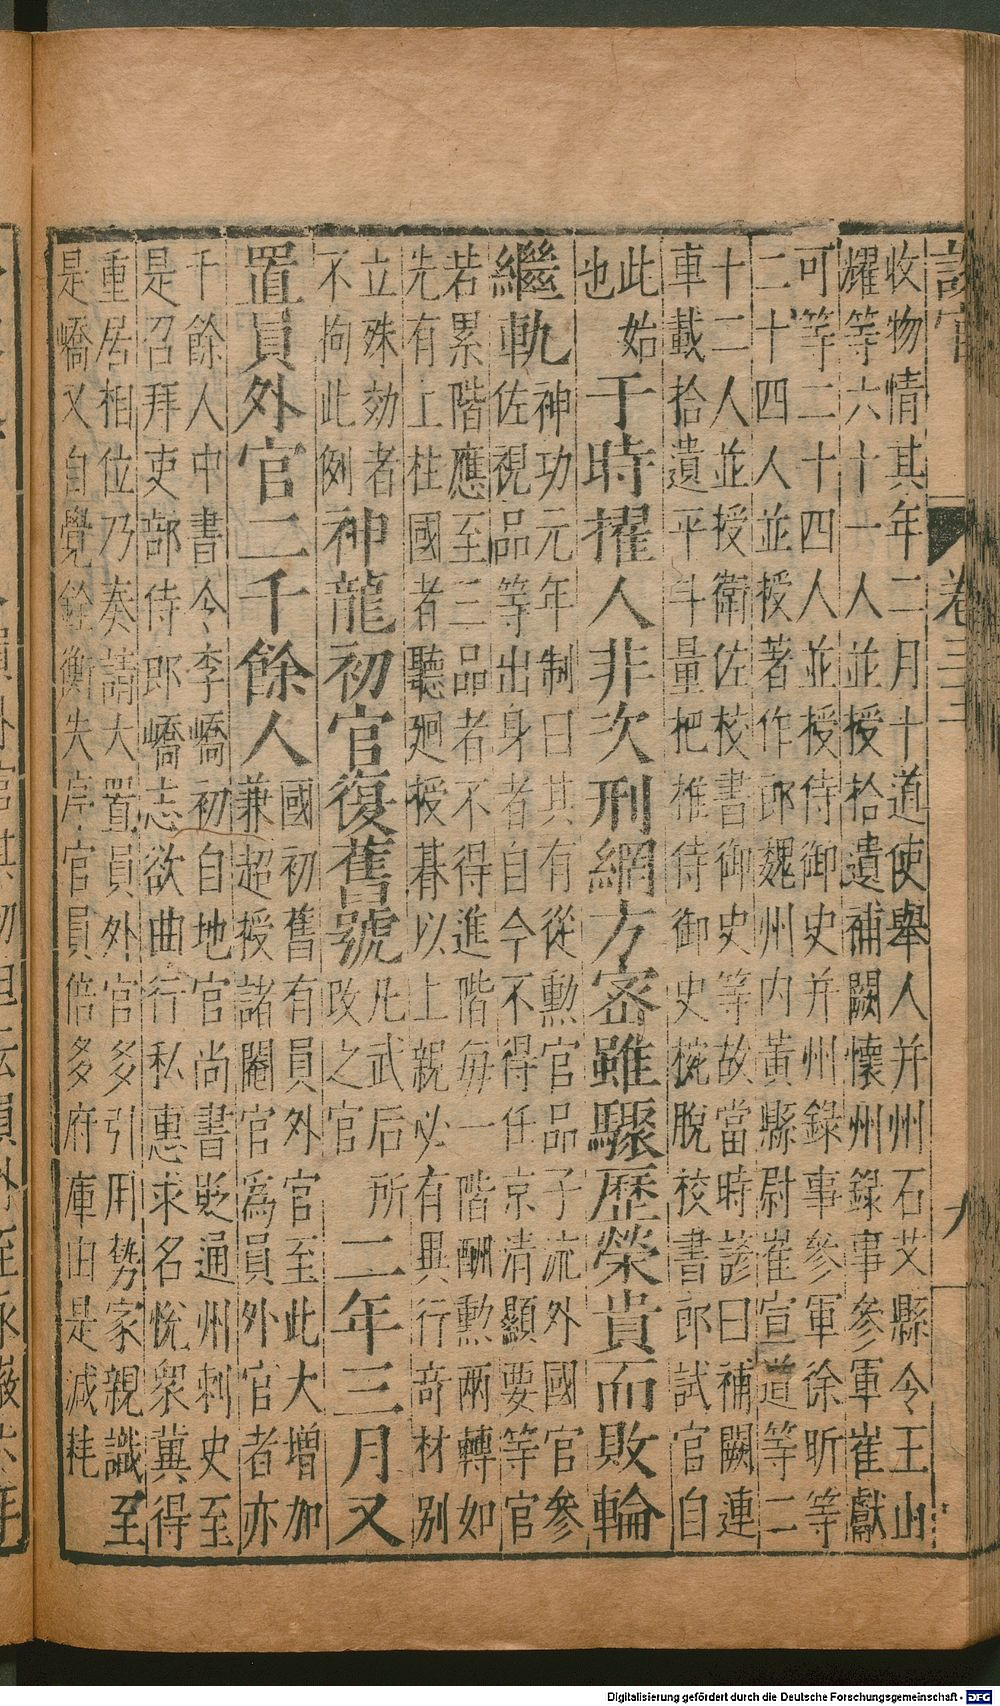 收物情其年二月十道使舉人并州石艾縣令王山
耀等六十一人並授拾遺補闕懷州錄事參軍崔獻
可等二十四人並授侍御史并州錄事參軍徐昕等
二十四人並授著作郎魏州內黃縣尉崔宣道等二
十二人並授衛佐校書御史等故當時諺曰補闕連
車載拾遺平斗量把推侍御史椀脫校書郎試官自
此始
也
于時擢人非次刑網方密雖驟歷榮貴而敗輪
繼軌
神功元年制曰其有從勳官品子流外國官參
佐視品等出身者自今不得任京清顯要等官
若累階應至三品者不得進階每一階酬勳兩轉如
先有上柱國者聽廻授朞以上親必有異行奇材別
立殊効者
不拘此例
神龍初官復舊號
凡武后所
改之官
二年三月又
置員外官二千餘人
國初舊有員外官至此大增加
兼超授諸閹官為員外官者亦
千餘人中書令李嶠初自地官尚書貶通州刺史至
是召拜吏部侍郎嶠志欲曲行私惠求名悅眾冀得
重居相位乃奏請大置員外官多引用勢家親識至
是嶠又自覺銓衡失序官員倍多府庫由是減耗
卷三
九
Digitalisierung gefördert durch die Deutsche Forschungsgemeinschaft - DFG